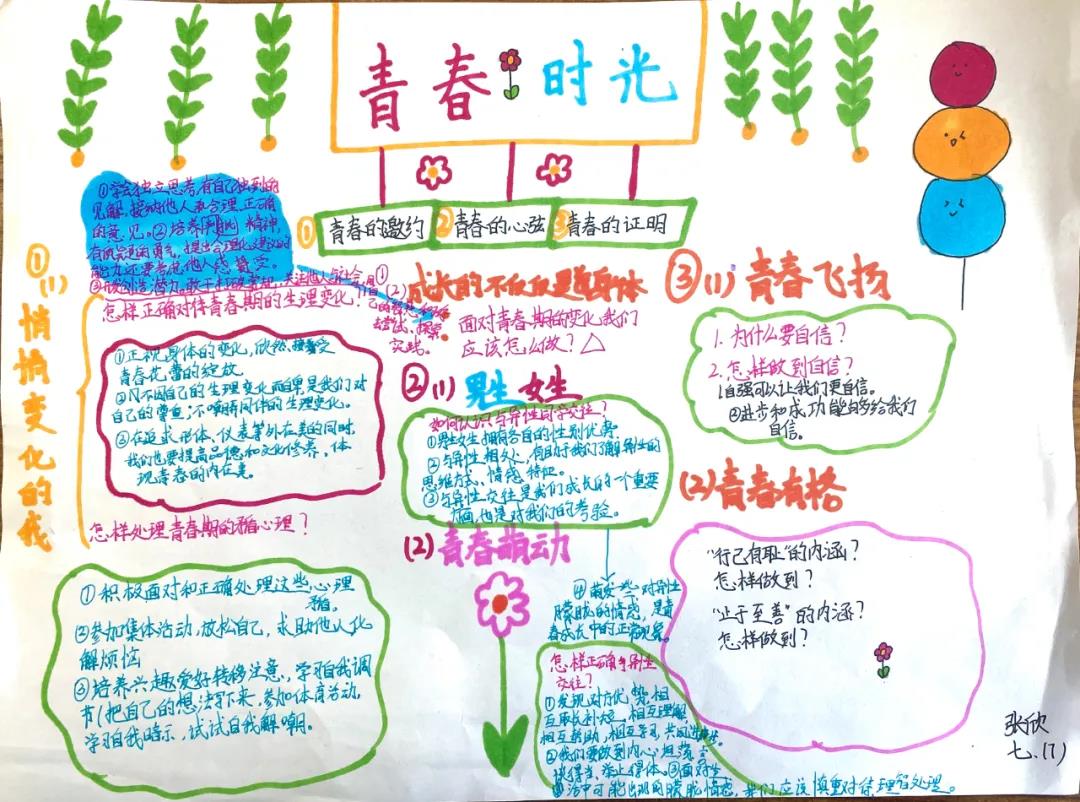 青春时光
①青春的邀约
②青春的心弦
③青春的证明
①学会独立思考,有自己独到的
见解,接纳他人合理、正确
的意见。②培养批判精神,
有
能力,还要考虑他人感受。
③
①
(1)
悄悄变化的我
怎样正确对待青春期的生理变化?
①正视身体的变化,欣然接受
青春花蕾的绽放。
②不因自己的生理变化而自卑是我们对
自己的尊重;不嘲弄同伴的生理变化。
③在追求形体、仪表等外在美的同时,
我们也要提高品德和文化修养,体
现青春的内在美。
怎样处理青春期的矛盾心理?
①积极面对和正确处理这些心理
矛盾。
②参加集体活动,放松自己,求助他人化
解烦恼
③培养兴趣爱好转移注意,学习自我调
节(把自己的想法写下来,参加体育活动,
学习自我暗示,试试自我解嘲。
①
(2)成长的不仅仅是身体
尝试、探索、
实践。
面对青春期的变化我们
应该怎么做?△
②(1)男生女生
如何认识与异性同学交往?
①男生女生拥有各自的性别优势。
②与异性相处,有助于我们了解异性的
思维方式、情感特征。
③与异性交往是我们成长的一个重要
方面,也是对我们的考验。
(2)青春萌动
④萌发一些对异性
朦胧的情感,是青
春成长中的正常现象。
怎样正确与异性
交往?
①发现对方优势,相
互取长补短,相互理解
相互帮助,相互学习,共同进步。
②我们要做到内心坦荡、言
谈得当、举止得体。③面对生
活中可能出现的朦胧情感,我们应该慎重对待理智处理。
③(1)青春飞扬
1.为什么要自信?
2.怎样做到自信?
1自强可以让我们更自信。
②进步和成功能够给我们
自信。
(2)青春有格
“行己有耻”的内涵?
怎样做到?
“止于至善”的内涵?
怎样做到?
张欣
七.(1)